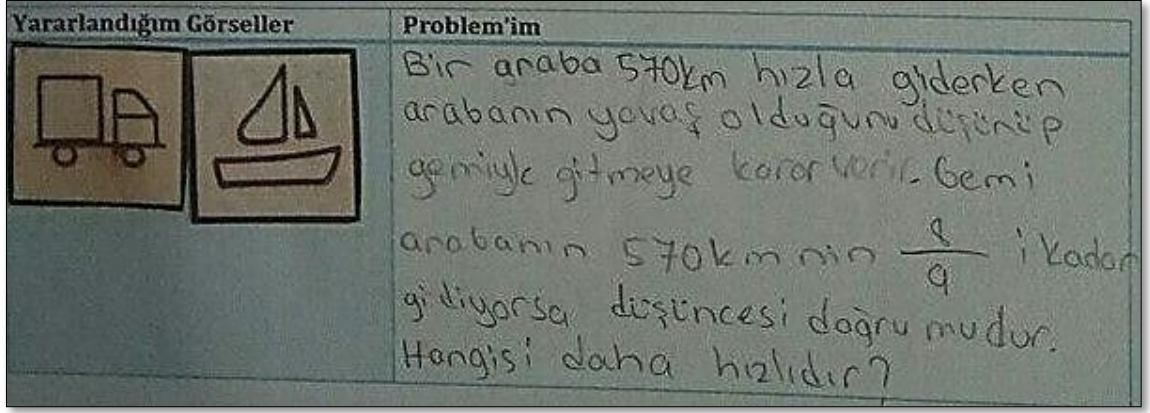 Yararlandığım Görseller
Problem'im
Bir araba 570km hızla giderken
arabanın yavaş olduğunu düşünüp
gemiyle gitmeye karar verir. Gemi
arabanın 570km nin 8/9 i kadar
gidiyorsa düşüncesi doğru mudur.
Hangisi daha hızlıdır?